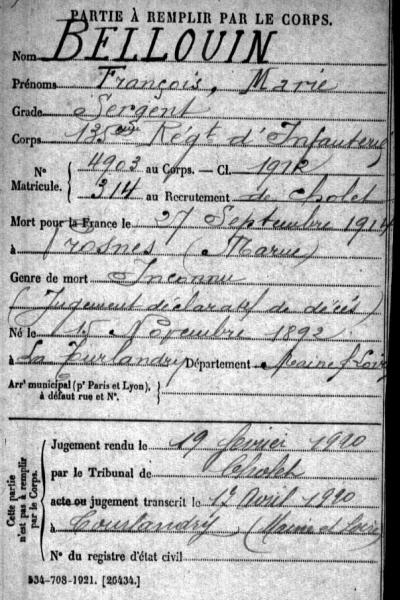 PARTIE À REMPLIR PAR LE CORPS.
Nom BELLOUIN
Prénoms François, Marie
Grade Sergent
Corps 135ème Régt d'Infanterie
N° Matricule. { 4903 au Corps. — Cl. 1912
314 au Recrutement de Cholet
Mort pour la France le 27 Septembre 1914
à Prosnes (Marne)
Genre de mort Inconnu
(Jugement déclaratif de décès)
Né le 15 Novembre 1892
à La Tourlandry Département Maine & Loire
Arr' municipal (p' Paris et Lyon), à défaut rue et N°.
Cette partie n'est pas à remplir par le Corps.
Jugement rendu le 19 février 1920
par le Tribunal de Cholet
acte ou jugement transcrit le 12 Avril 1920
à Tourlandry (Maine et Loire)
N° du registre d'état civil
534-708-1921. [26434.]